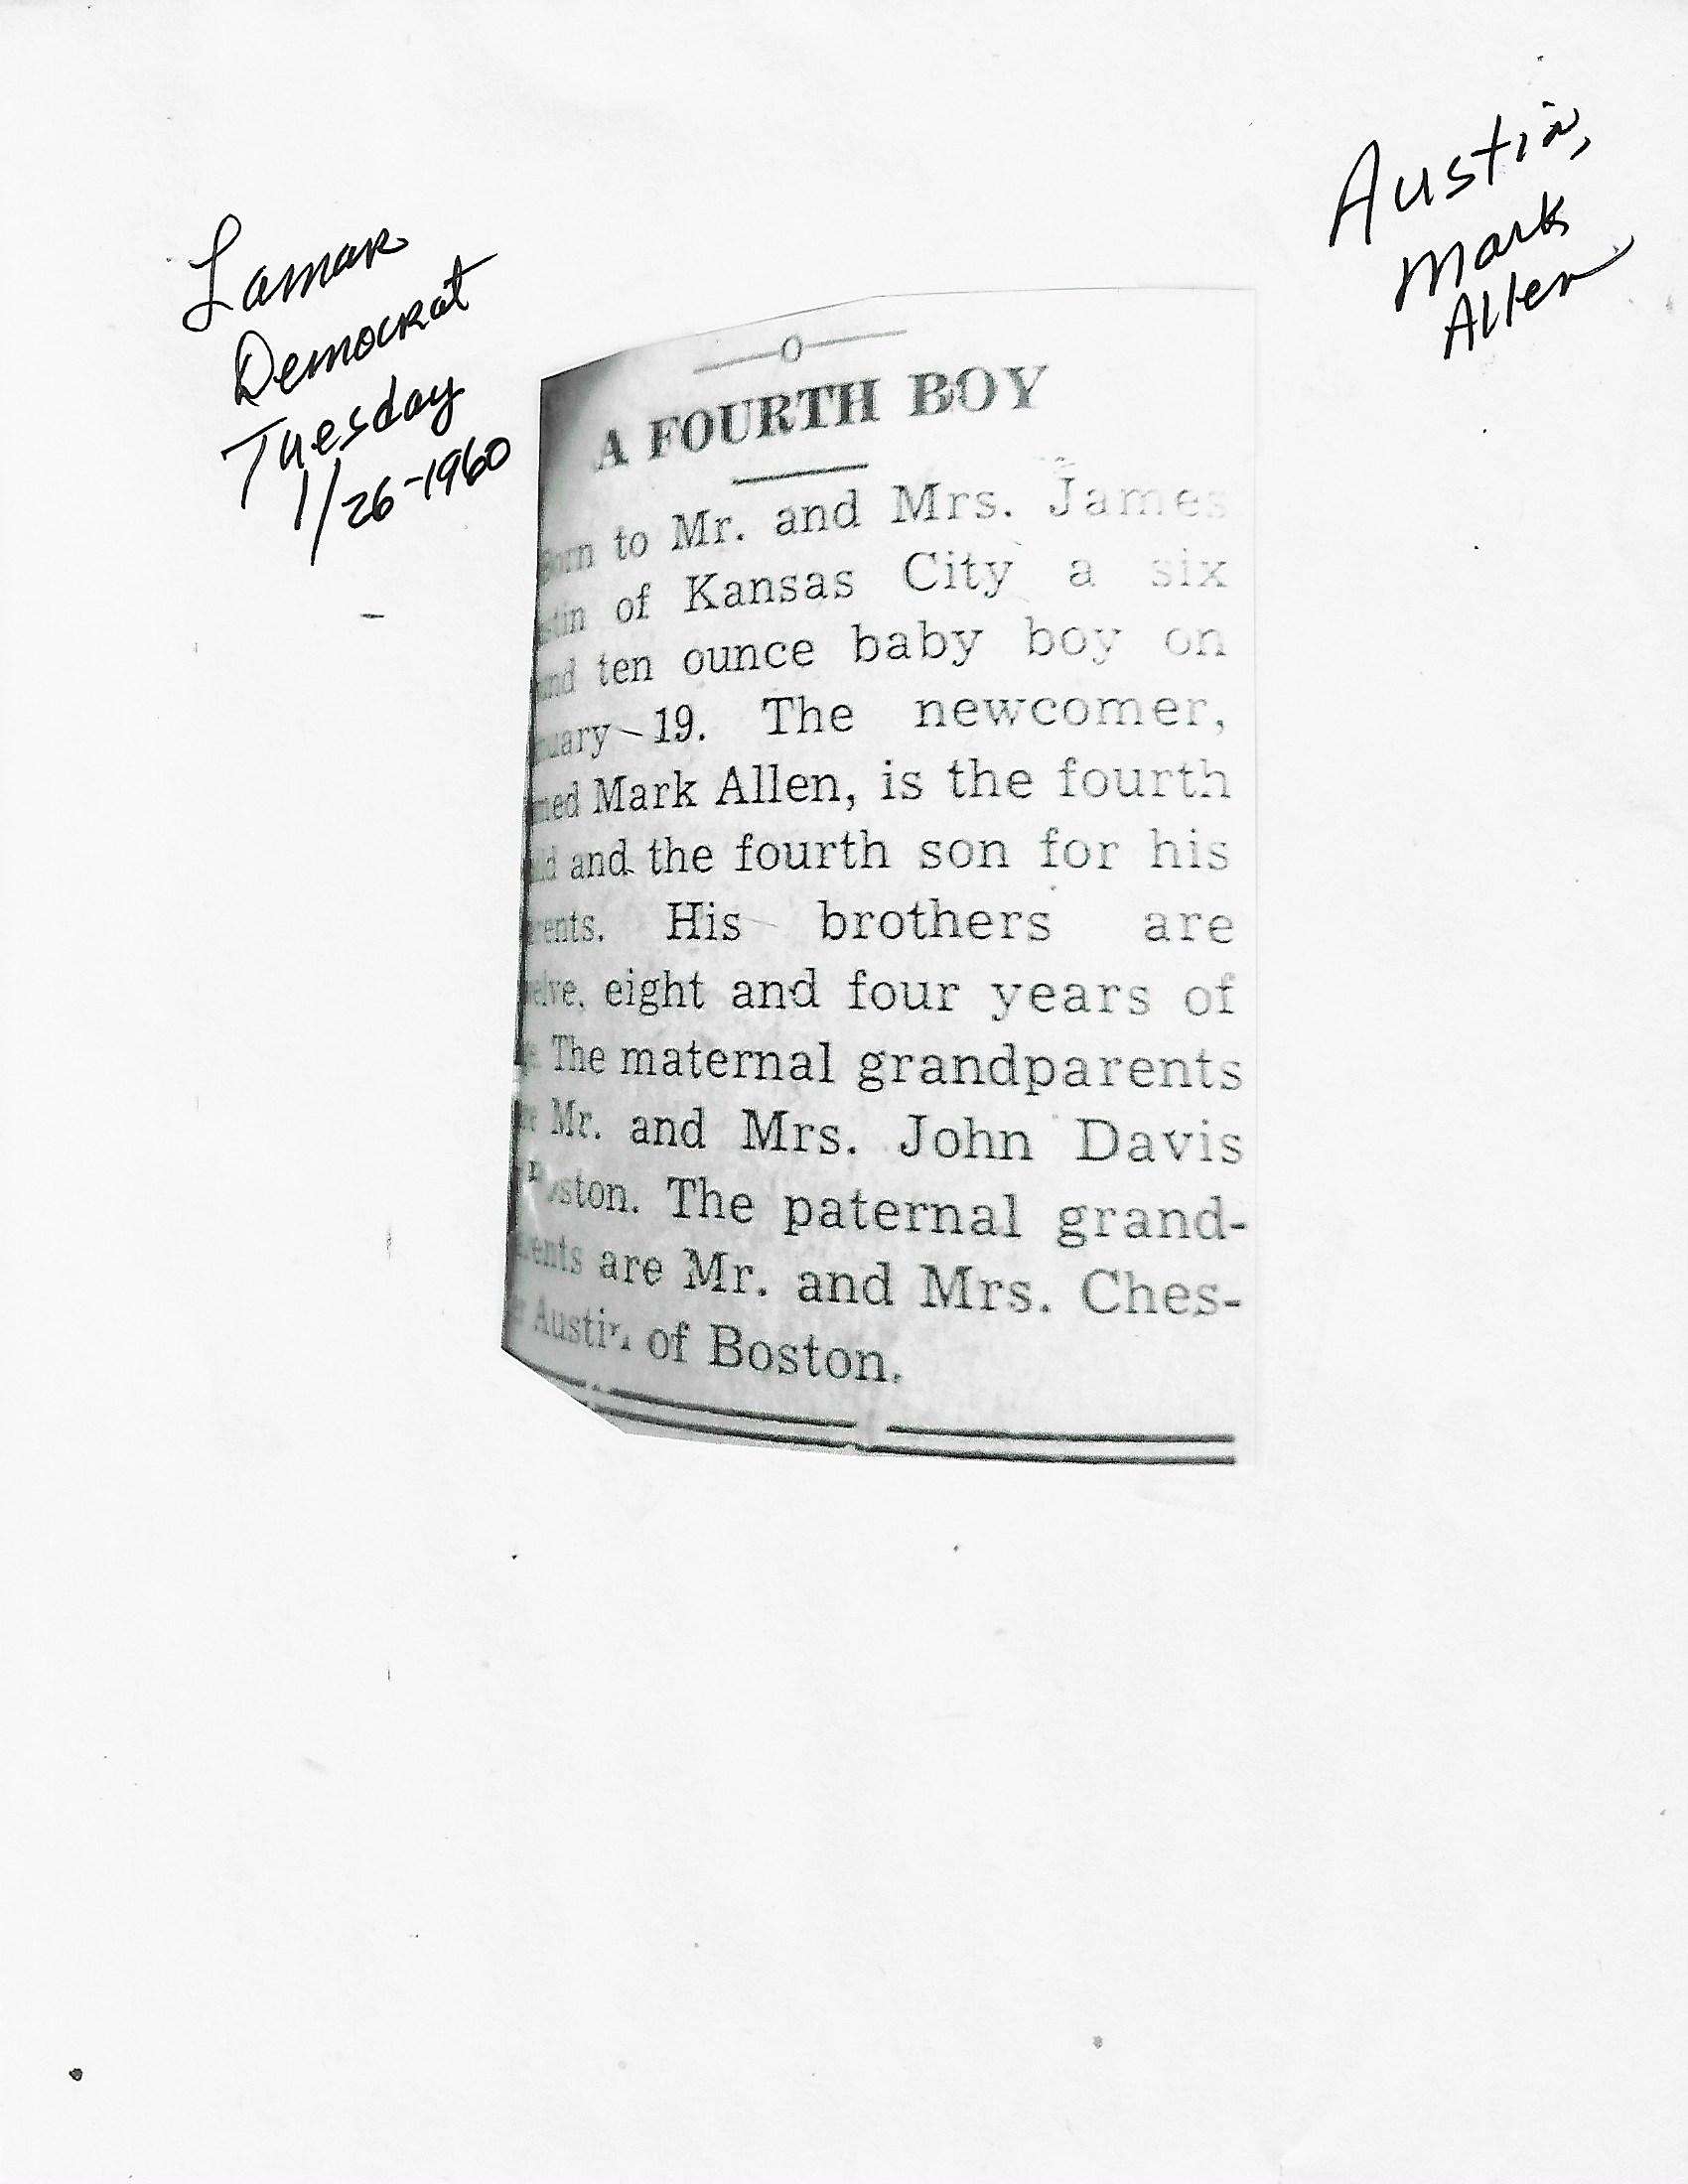 Lamar
Democrat
Tuesday
1/26-1960
Austin,
Mark
Allen
A FOURTH BOY
Born to Mr. and Mrs. James
stin of Kansas City a six
und ten ounce baby boy on
nuary 19. The newcomer,
med Mark Allen, is the fourth
ild and the fourth son for his
rents. His brothers are
elve, eight and four years of
e. The maternal grandparents
re Mr. and Mrs. John Davis
Boston. The paternal grand-
rents are Mr. and Mrs. Ches-
r Austin of Boston.